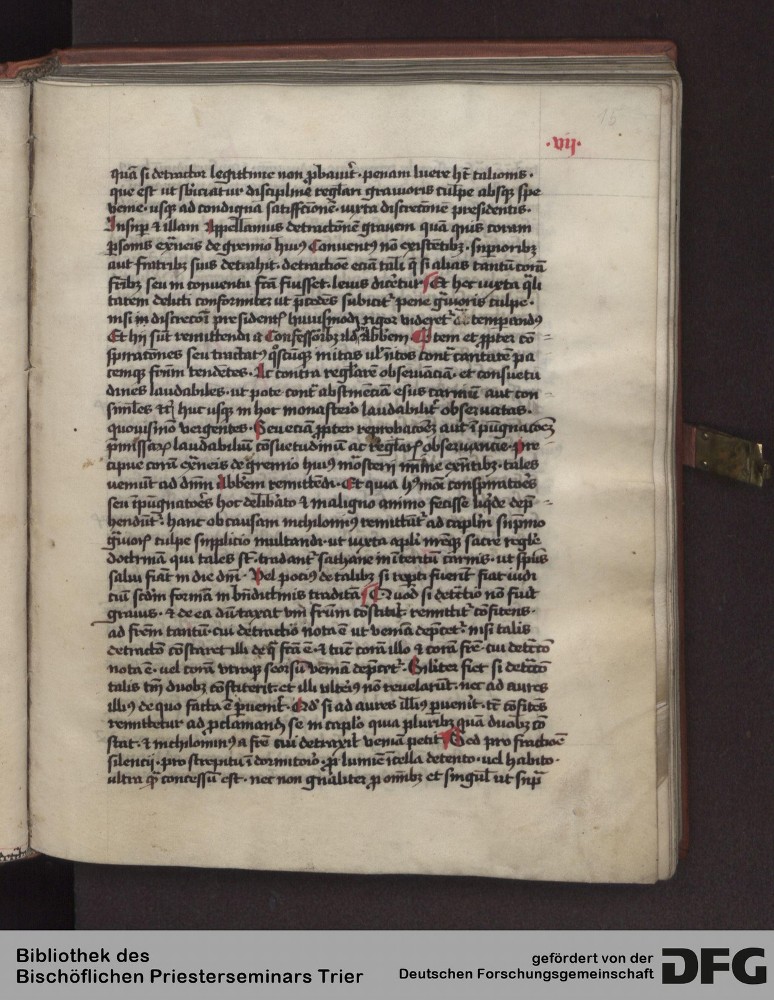 15
·vij·
quā si detractor legittime non ꝓbauit̄· penam luere hꝫ talionis·
que est ut sb'iciatur discipline regl'ari grauioris culpe absqꝫ spe
venie· usqꝫ ad condignā satisfactionē· iuxta discretionē presidentis·
Insup̄ & illam Appellamus detractionē grauem quā quis coram
ꝑsonis ext̄neis de gremio huiꝰ Conuentꝰ nō existētibꝫ· supioribꝫ
aut fratribꝫ suis detrahit· detractiōe etiā tali q̄ si alias tantū corā
fr̄ibꝫ seu in conuentu fc̄a fuisset· leuis dicēretur Et hec iuxta q̄li
tatem delicti conformiter ut p̄cedēs subicit̄ pene ḡuioris culpe·
nisi in discrecōi presidentꝭ huiusmodi rigor videret̄ tempandꝰ
Et hij sūt remittendi a Confessoribꝫ ad Abbem Itē et ꝓpter cō
spirationes seu tractatꝰ qͦscūqꝫ intus ul' ext̄os cont̄ caritatē pa
cemqꝫ frūm tendētes· Ac contra reglarē obseruātiā· et consuetu
dines laudabiles· ut pote cont̄ abstinēciā esus carniū aut con
similes huc usqꝫ in hoc monasterio laudabilit̄ obseruatas·
quouismō vergentes· Seu etiā ꝓpter reprobatoēs aut īpugnatoēs
p̄missaꝝ laudabiliū cōsuetudinum ac reglariꝫ obseruancie· pre
cipue corā ext̄neis de gremio huiꝰ mōsterij mīme exn̄tibꝫ· tales
veniūt ad dnm̄ Abbēm remittēdi· Et quia hꝰmōi conspiratoēs
seu īpugnatoēs hoc delib̄ato & maligno animo fecisse liq̄de dep̄
hendūt̄· hanc ob causam nichilominꝰ remittūt̄ ad cap̄lm supmo
ḡuioꝝ culpe supplicio multandi· ut iuxta apl'i nr̄eqꝫ sacre regle
doctrinam qui tales st̄· tradant̄ sathane in int̄itū carnis· ut sp̄us
salui fiāt in die dn̄i· Vel pociꝰ de talibꝫ si rep̄ti fuerit̄ fiat iudi
ciū scdm formā in bn̄dictinis traditā Quod si detractio nō fuit̄
grauis· & de ea dūtaxat vni frūm cōstitit̄· remittit̄ cōfitens·
ad frēm tantū· cui detractio nota ē ut veniā dep̄cet̄· nisi talis
detractō cōstaret illi de q̄ fc̄a ē· & tūc corā illo & corā fr̄e· cui detractō
nota ē· vel corā vtroqꝫ seorsū veniam dep̄cet̄· Similiter fiet si detractō
talis tm̄ duobꝫ cōstiterit· et illi vlteriꝰ nō reuelarūt· nec ad aures
illiꝰ de quo facta ē p̄uenit̄· Qd' si ad aures illiꝰ ꝑuenit̄· tē cōfitēs
remittetur ad ꝓclamandū se in cap̄lo quia pluribꝫ quā duobꝫ cō
stat· & nichilominꝰ a fr̄e cui detraxit̄ veniam petit̄ Sed pro fractiōe
silencij· pro strepitu ī dormitorio· ꝓ lumīe ī cella detento· vel habito·
ultra q̄ concessū est· nec non gn̄aliter ꝓ om̄ibꝫ et singul' ut sup̄
Bibliothek des
Bischöflichen Priesterseminars Trier
gefördert von der
Deutschen Forschungsgemeinschaft DFG